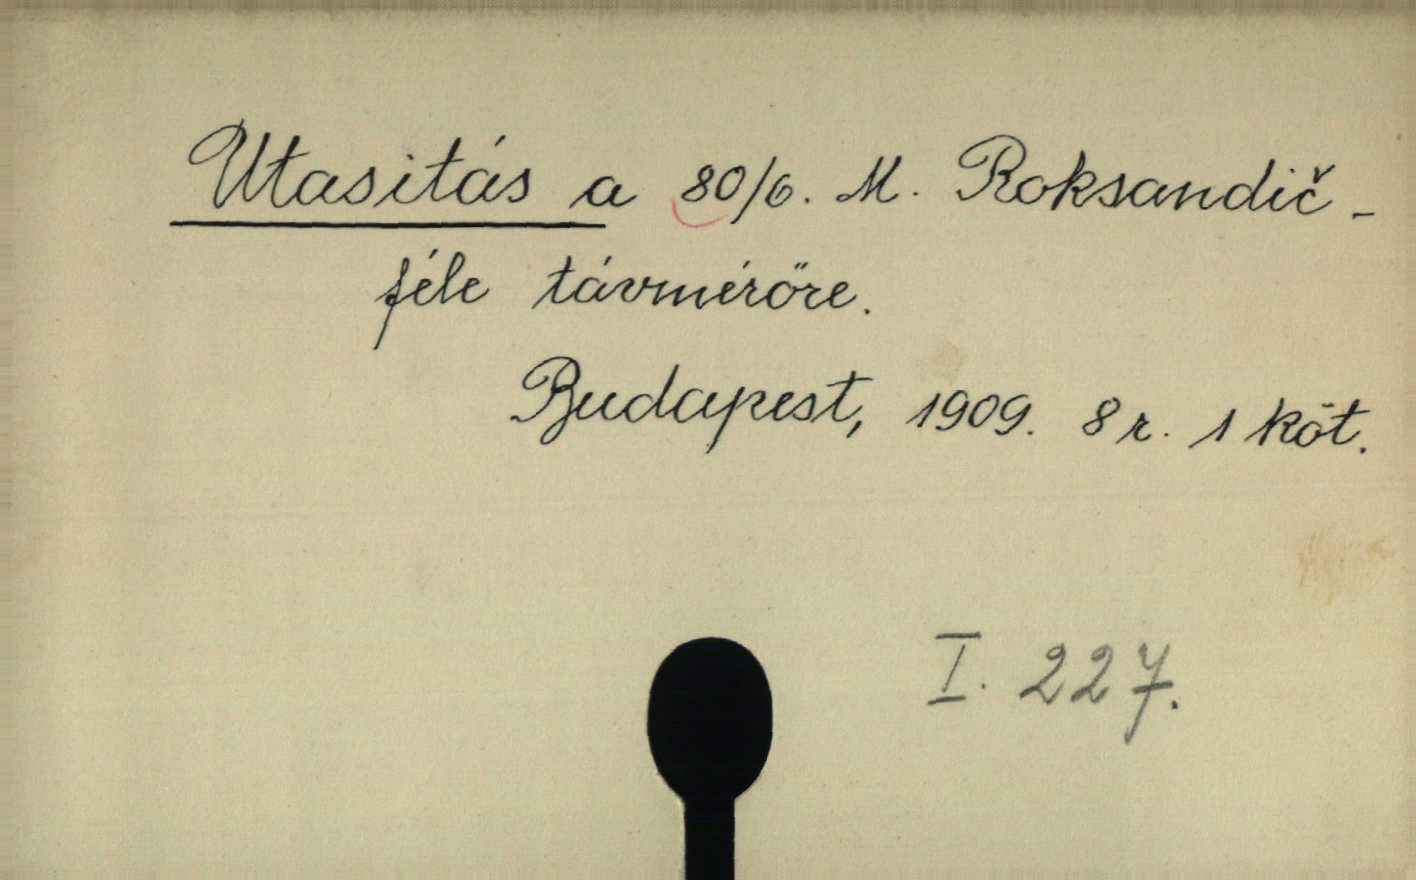 Utasitás a 80/6. M. Roksandič-
féle távmérőre.
Budapest, 1909. 8 r. 1 köt.
I. 227.